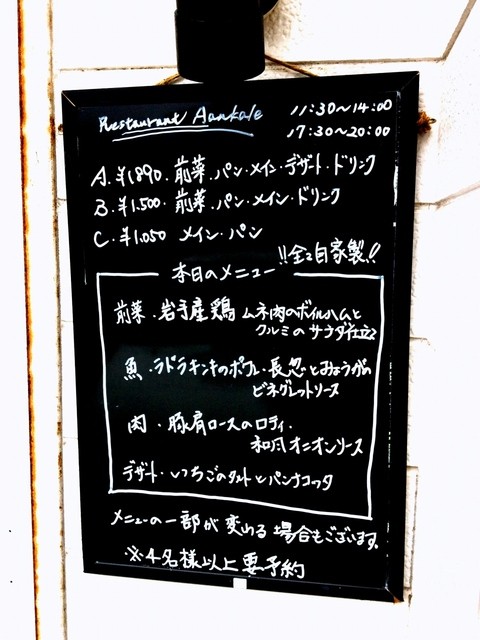 Restaurant Aankale
11:30〜14:00
17:30〜20:00
A. ¥1890. 前菜.パン・メイン・デザート・ドリンク
B. ¥1.500. 前菜.パン・メイン・ドリンク
C. ¥1.050 メイン・パン
!!全て自家製!!
本日のメニュー
前菜.岩手産鶏ムネ肉のボイルハムと
クルミのサラダ仕立て
魚.のポワレ・長葱とみょうがの
ビネグレットソース
肉.豚肩ロースのロティ.
和風オニオンソース
デザート.いちごのタルトとパンナコッタ
メニューの一部が変わる場合もございます。
※4名様以上要予約